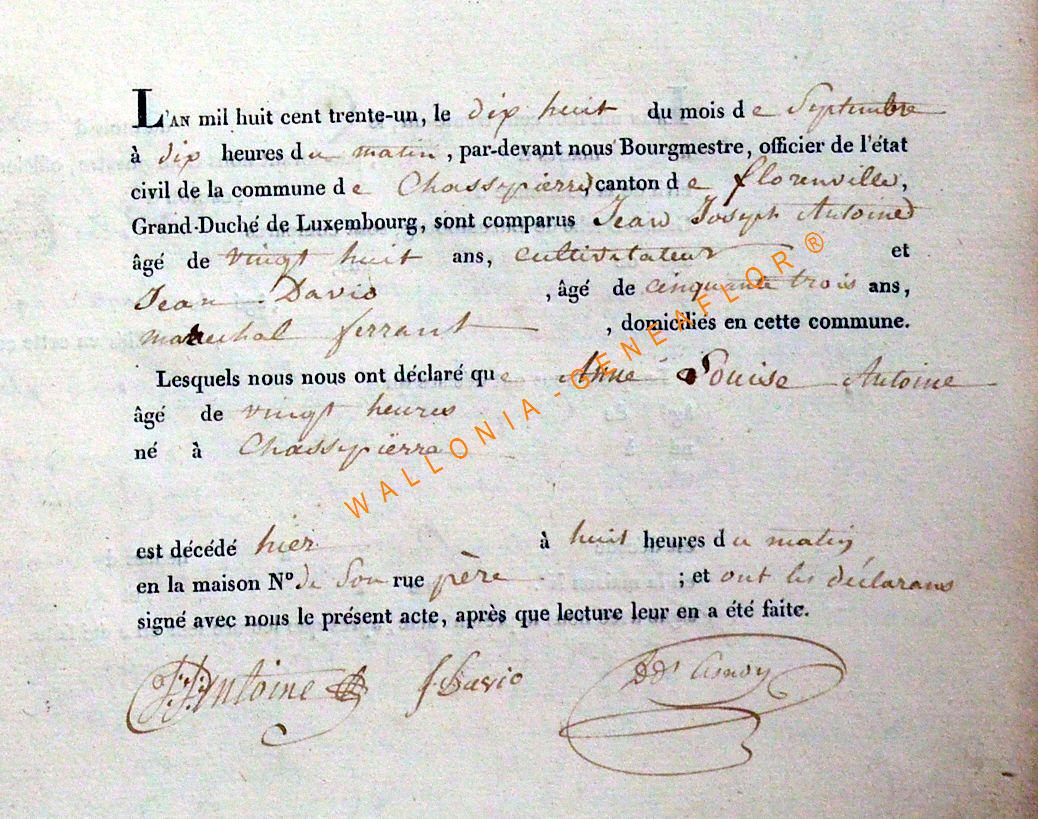 L'AN mil huit cent trente-un, le dix huit du mois de Septembre
à dix heures du matin, par-devant nous Bourgmestre, officier de l'état
civil de la commune de Chassypierre, canton de florenville,
Grand-Duché de Luxembourg, sont comparus Jean Joseph Antoine
âgé de vingt huit ans, cultivatateur et
Jean David, âgé de cinquante trois ans,
marechal ferrant, domiciliés en cette commune.
Lesquels nous nous ont déclaré que Anne Louise Antoine
âgé de vingt heures
né à Chassypierre
est décédé hier à huit heures du matin
en la maison N° de Son rue père ; et ont les déclarans
signé avec nous le présent acte, après que lecture leur en a été faite.
J:J: Antoine
WALLONIA - GENENFLOR ®